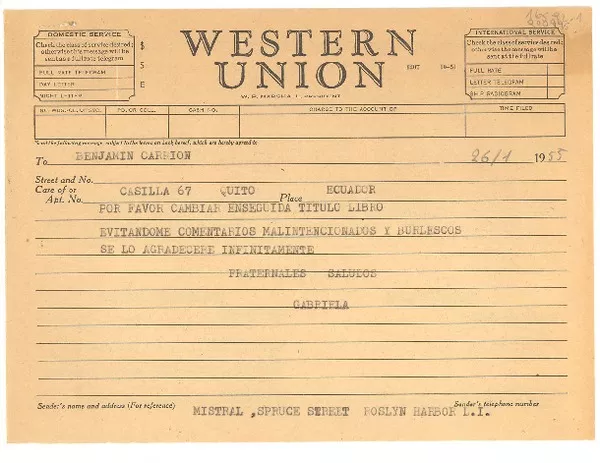 DOMESTIC SERVICE
Check the class of service desired;
otherwise this message will be
sent as a full rate telegram
FULL RATE TELEGRAM
DAY LETTER
NIGHT LETTER
$
S
E
WESTERN
UNION
W. P. MARSHALL, PRESIDENT
1051
10-51
INTERNATIONAL SERVICE
Check the class of service desired;
otherwise the message will be
sent at the full rate
FULL RATE
LETTER TELEGRAM
SHIP RADIOGRAM
NO. WDS.-CL. OF SVC.
PD. OR COLL.
CASH NO.
CHARGE TO THE ACCOUNT OF
TIME FILED
Send the following message, subject to the terms on back hereof, which are hereby agreed to
To BENJAMIN CARRION 26/1 1955
Street and No.
Care of or
Apt. No. CASILLA 67 QUITO Place ECUADOR
POR FAVOR CAMBIAR ENSEGUIDA TITULO LIBRO
EVITANDOME COMENTARIOS MALINTENCIONADOS Y BURLESCOS
SE LO AGRADECERE INFINITAMENTE
FRATERNALES SALUDOS
GABRIELA
Sender's name and address (For reference)
Sender's telephone number
MISTRAL ,SPRUCE STREET ROSLYN HARBOR L.I.